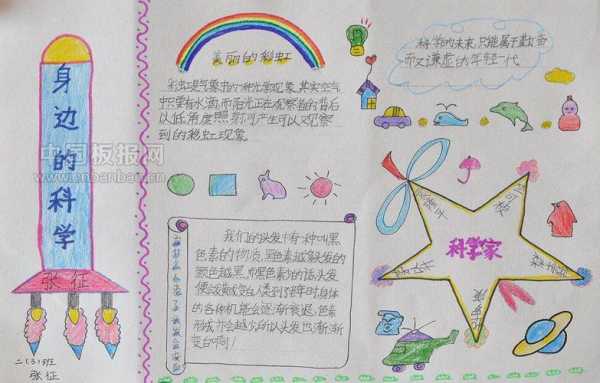 身边的科学
张征
二(3)班
张征
中国板报网
www.cnbanbao.cn
美丽的彩虹
彩虹是气象中的一种光学现象,其实空气
中只要有水滴,而阳光正在观察者的背后
以低角度照射,便可产生可以观察
到的彩虹现象
科学的未来,只能属于勤奋
而又谦虚的年轻一代
我们的头发中有一种叫黑
色素的物质,黑色素越多头发的
颜色越黑,而黑色素少的话头发
便会发黄或变白,人类到了老年时,身体的
各种机能会逐渐衰退,色素
形成亦会越少,所以头发也渐渐
变白啊!
科学家